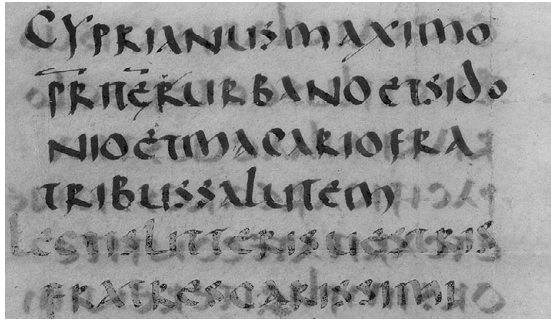 CYPRIANUS MAXIMO
URBANO ET SIDO
NIO ET MACARIO FRA
TRIBUS SALUTEM
LECTIS LITTERIS UESTRIS
FRATRES CARISSIMI